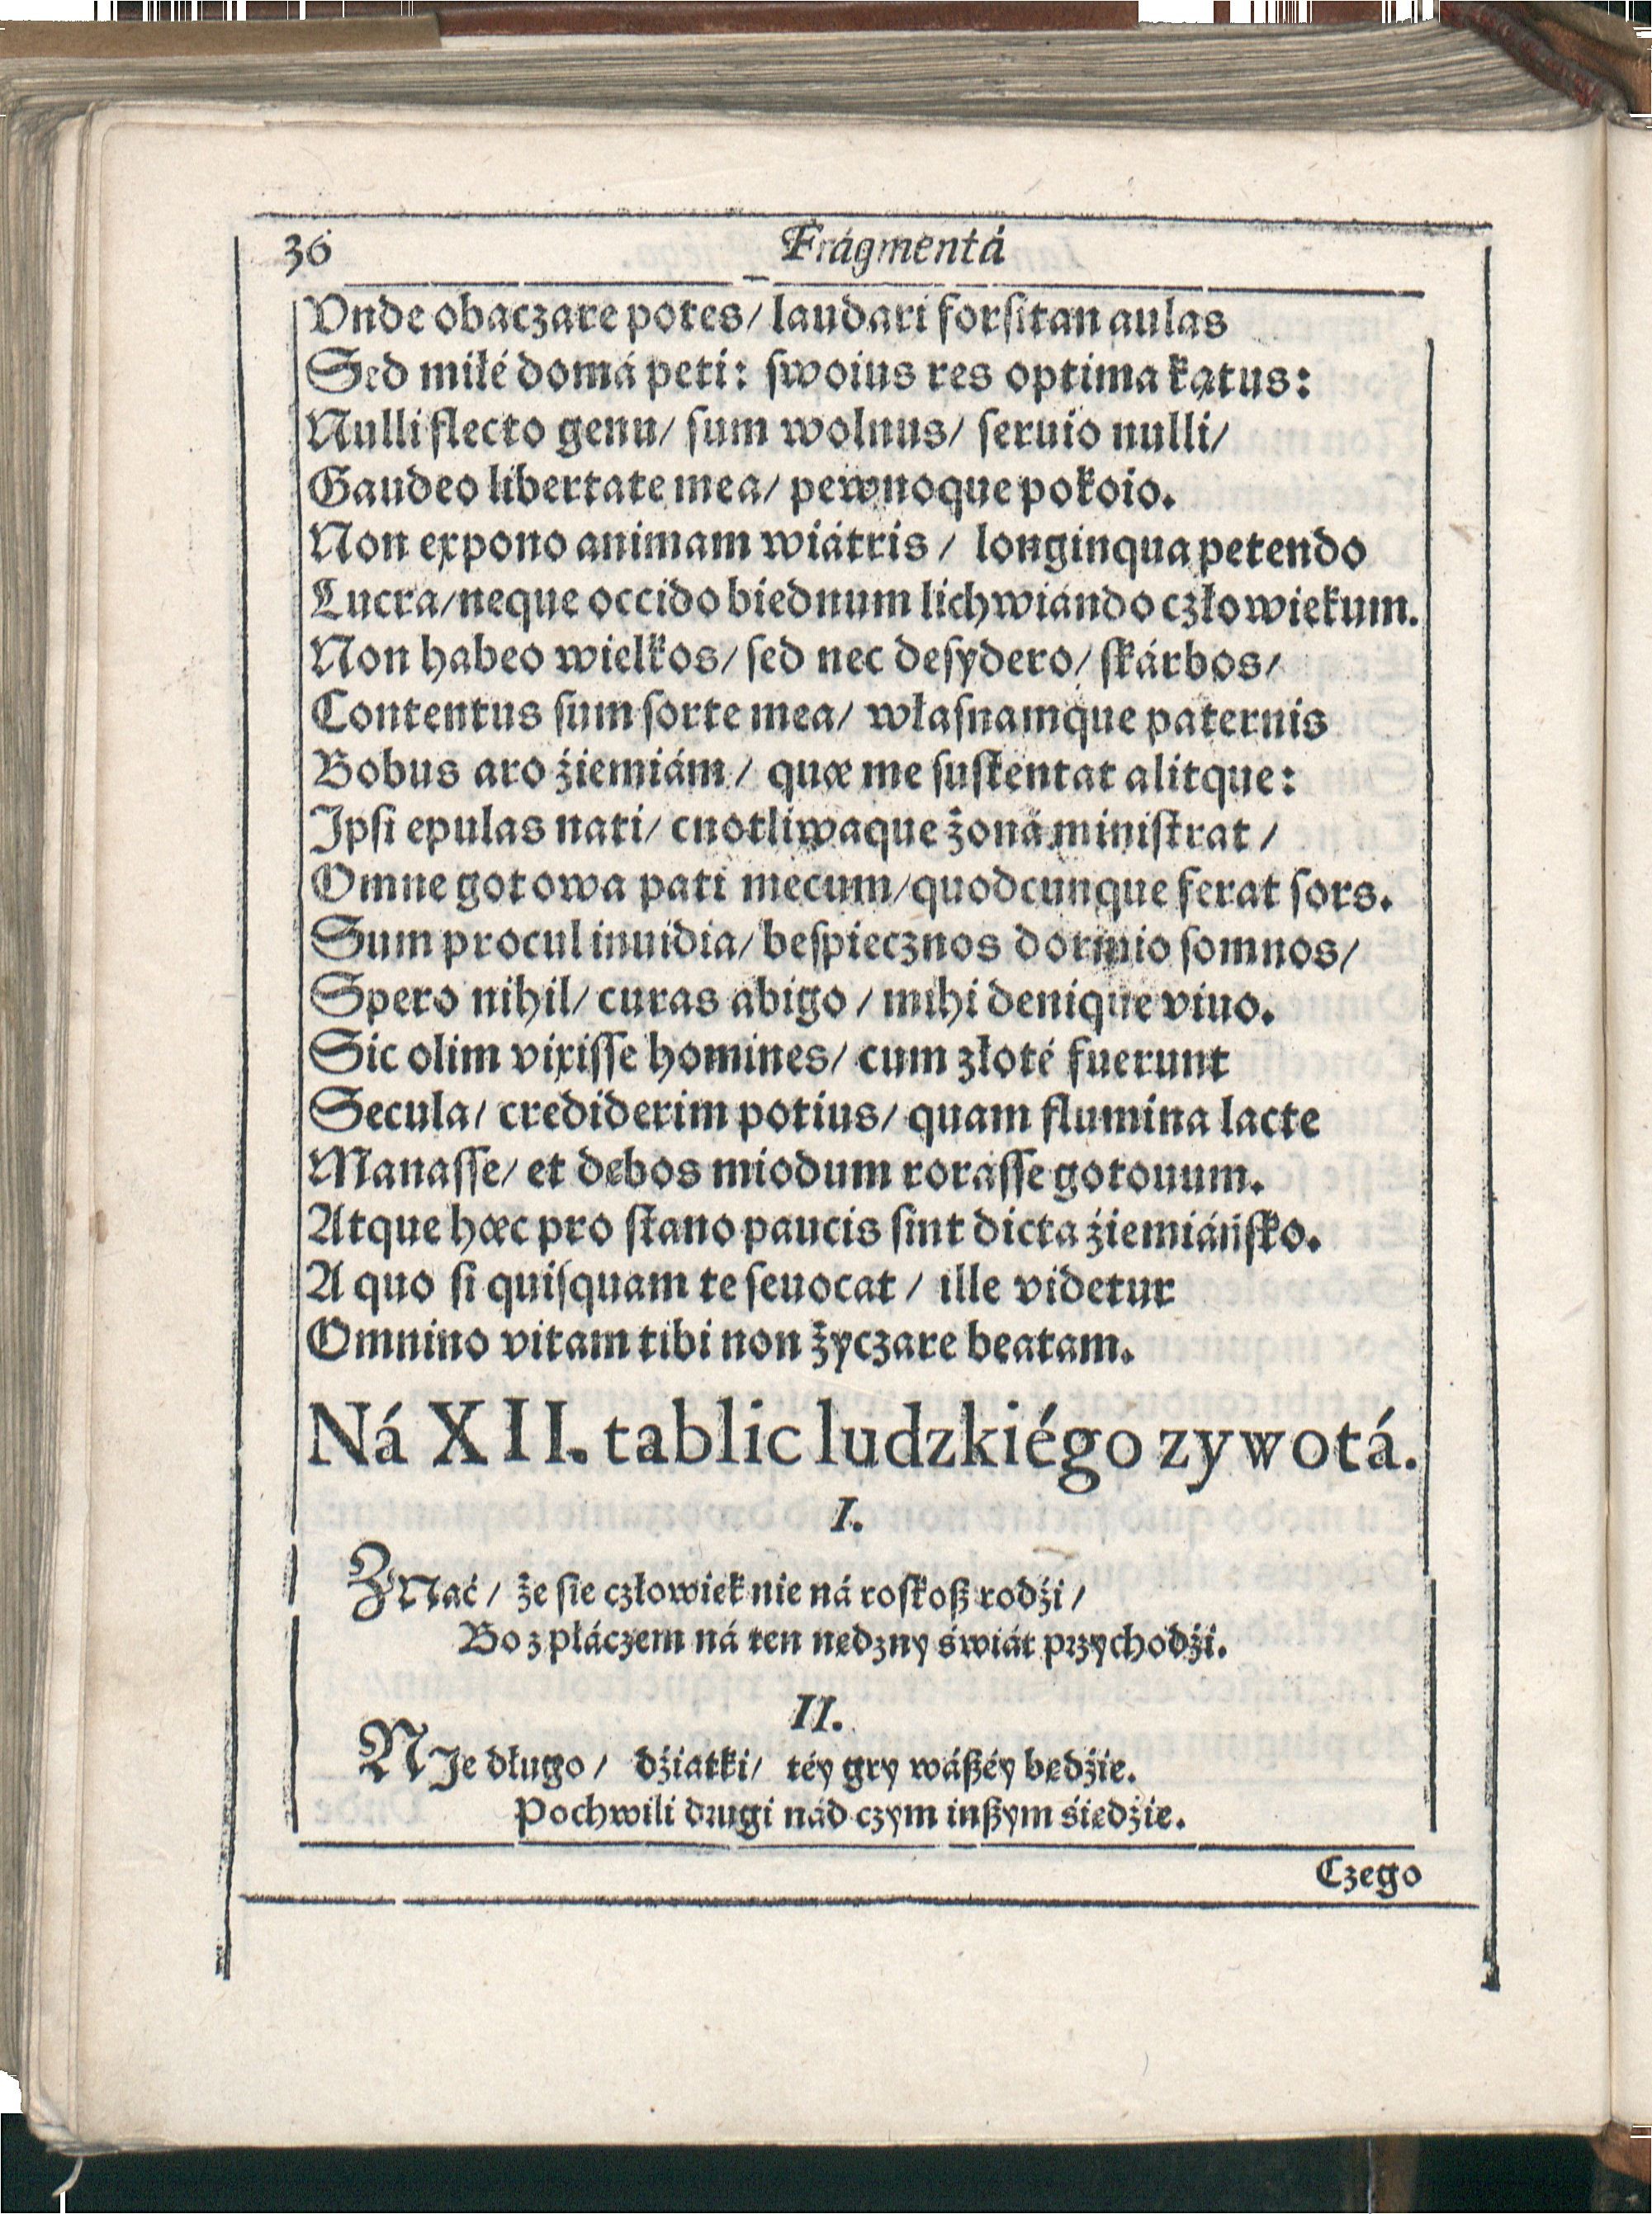 36 Frágmentá
Vnde obaczare potes/ laudari forſitan aulas
Sed miłé domá peti: ſwoius res optima kątus:
Nulli flecto genu/ ſum wolnus/ ſeruio nulli/
Gaudeo libertate mea/ pewnoque pokoio.
Non expono animam wiátris / longinqua petendo
Lucra/ neque occido biednum lichwiándo człowiekum.
Non habeo wielkos/ ſed nec deſydero/ ſkárbos/
Contentus ſum ſorte mea/ właſnamque paternis
Bobus aro źiemiám / quæ me ſuſtentat alitque:
Ipſi epulas nati/ cnotliwaque żoná miniſtrat /
Omne gotowa pati mecum/ quodcunque ferat ſors.
Sum procul inuidia/ beſpiecznos dormio ſomnos/
Spero nihil/ curas abigo / mihi denique viuo.
Sic olim vixiſſe homines/ cum złoté fuerunt
Secula/ crediderim potius/ quam flumina lacte
Manaſſe/ et debos miodum roraſſe gotouum.
Atque hæc pro ſtano paucis ſint dicta źiemiáńſko.
A quo ſi quiſquam te ſeuocat / ille videtur
Omnino vitam tibi non życzare beatam.
Ná XII. tablic ludzkiégo zywotá.
I.
ZNać / że ſie człowiek nie ná roſkoß rodźi /
Bo z płáczem ná ten nędzny świát przychodźi.
II.
NIe długo / dźiatki/ téy gry wáßéy będźie.
Po chwili drugi nád czym inßym śiędźie.
Czego